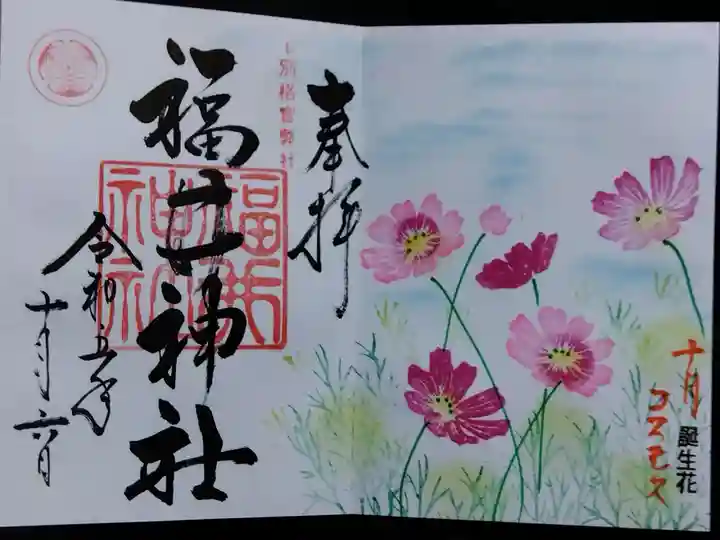 十月
誕生花
コスモス
奉拝
別格官幣社
福井神社
令和五年
十月六日